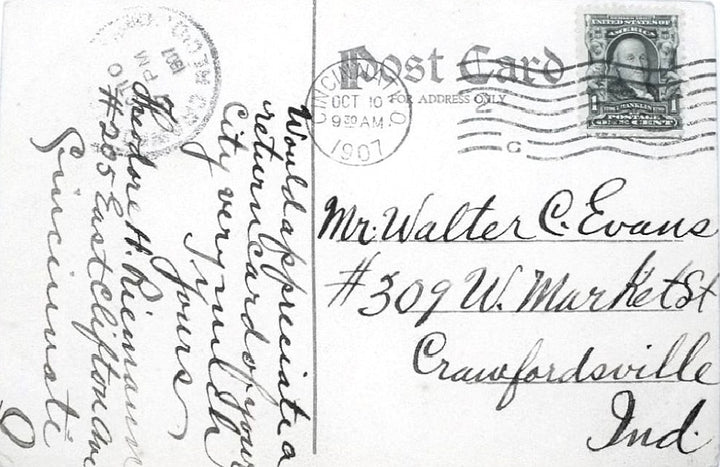 Post Card
FOR ADDRESS ONLY
CINCINNATI, O.
OCT 10
9 30 AM
1907
C
SERIES 1902
UNITED STATES OF
AMERICA
1 FRANKLIN 1
POSTAGE
ONE CENT
Would appreciate a
return card of your
City very much
Yours
Theodore H. Riemann
#205 East Clifton Ave
Cincinnati
O
Mr. Walter C. Evans
#309 W. Market St
Crawfordsville
Ind.
PM
1907
REC'D